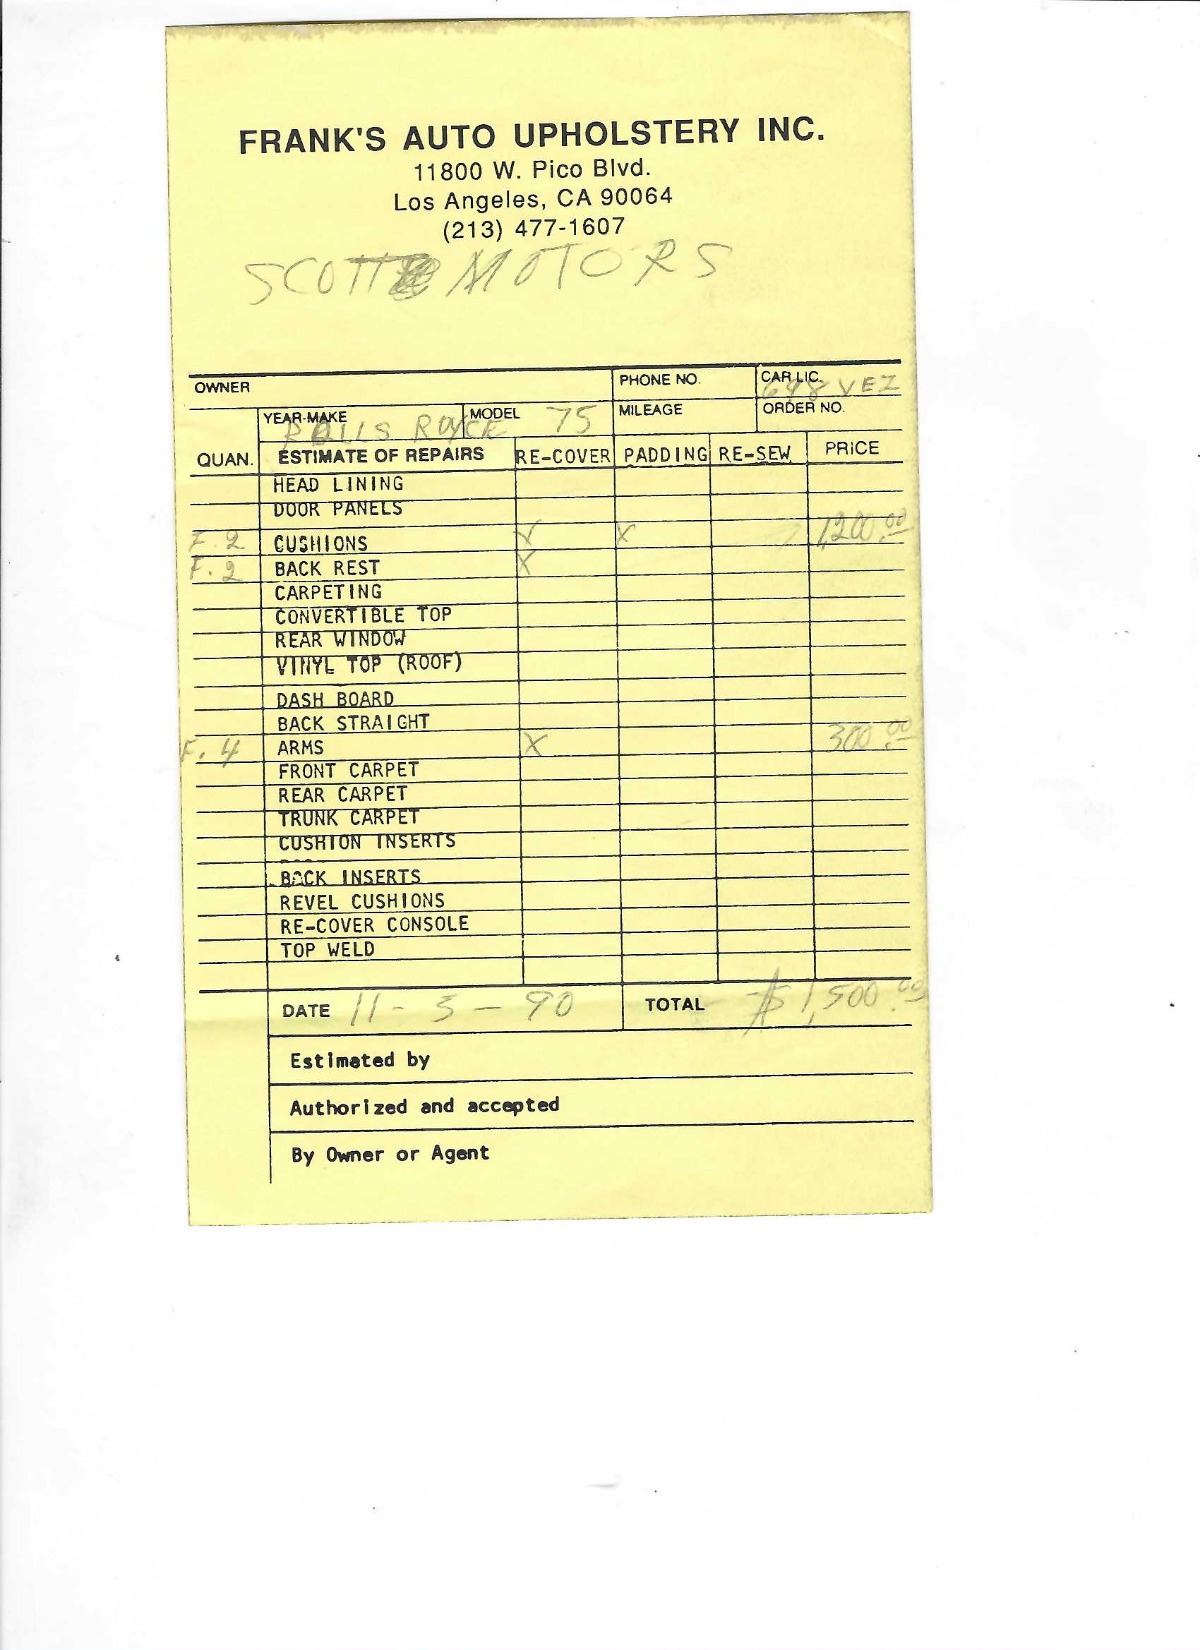 FRANK'S AUTO UPHOLSTERY INC.
11800 W. Pico Blvd.
Los Angeles, CA 90064
(213) 477-1607
SCOTT MOTORS
OWNER PHONE NO. CAR LIC. 698 VEZ
YEAR-MAKE ROLLS ROYCE MODEL 75 MILEAGE ORDER NO.
QUAN. ESTIMATE OF REPAIRS RE-COVER PADDING RE-SEW PRICE
HEAD LINING
DOOR PANELS
F. 2 CUSHIONS X X 1,200.00
F. 2 BACK REST X
CARPETING
CONVERTIBLE TOP
REAR WINDOW
VINYL TOP (ROOF)
DASH BOARD
BACK STRAIGHT
F. 4 ARMS X 300.00
FRONT CARPET
REAR CARPET
TRUNK CARPET
CUSHION INSERTS
BACK INSERTS
REVEL CUSHIONS
RE-COVER CONSOLE
TOP WELD
DATE 11-5-90 TOTAL $1,500.00
Estimated by
Authorized and accepted
By Owner or Agent